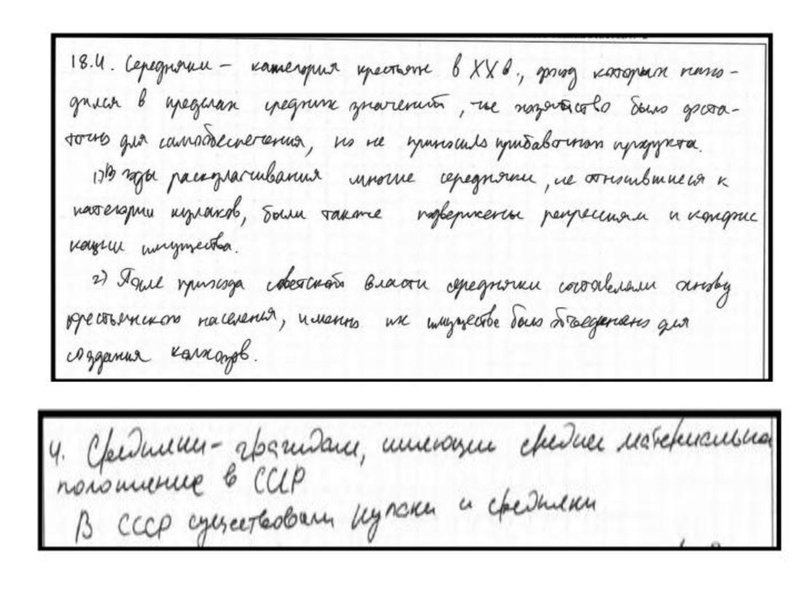 18.4. Середняки – категория крестьян в XX в., доход которых нахо-
дился в пределах средних значений, чьё хозяйство было доста-
точно для самообеспечения, но не приносило прибавочного продукта.
1) В годы раскулачивания многие середняки, не относившиеся к
категории кулаков, были также подвержены репрессиям и конфис
кации имущества.
2) После прихода советской власти середняки составляли основу
крестьянского населения, именно их имущество было объединено для
создания колхозов.
4. Средняки – граждане, имеющие среднее материально
положение в СССР
В СССР существовали кулаки и средняки